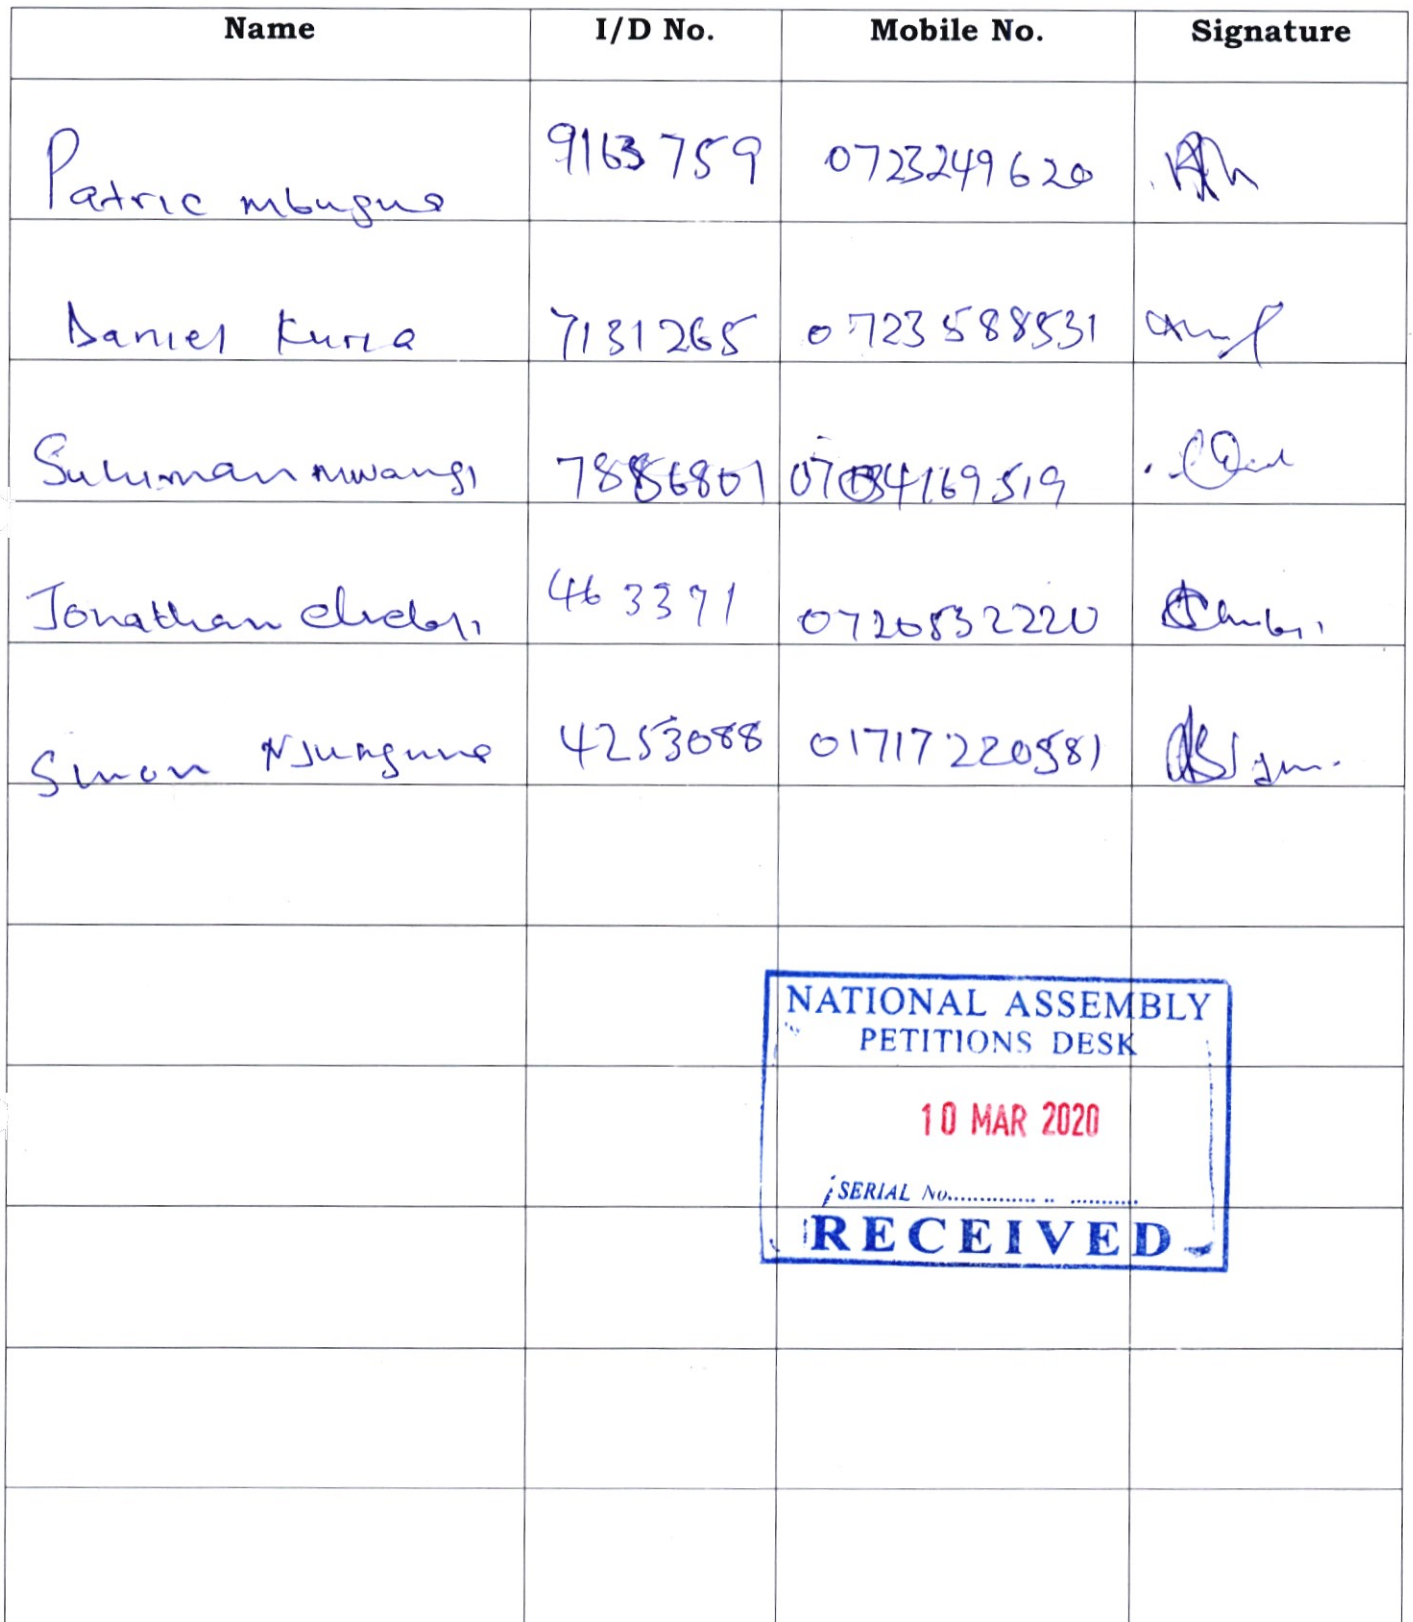 Name I/D No. Mobile No. Signature
Patric mbugua 9163759 0723249620
Daniel Kuria 7131265 0723588531
Suluman mwangi 7886801 0169519
Jonathan 463371 0720832220
Simon Njunguna 4253088 01717220581
NATIONAL ASSEMBLY
PETITIONS DESK
10 MAR 2020
SERIAL No.
RECEIVED